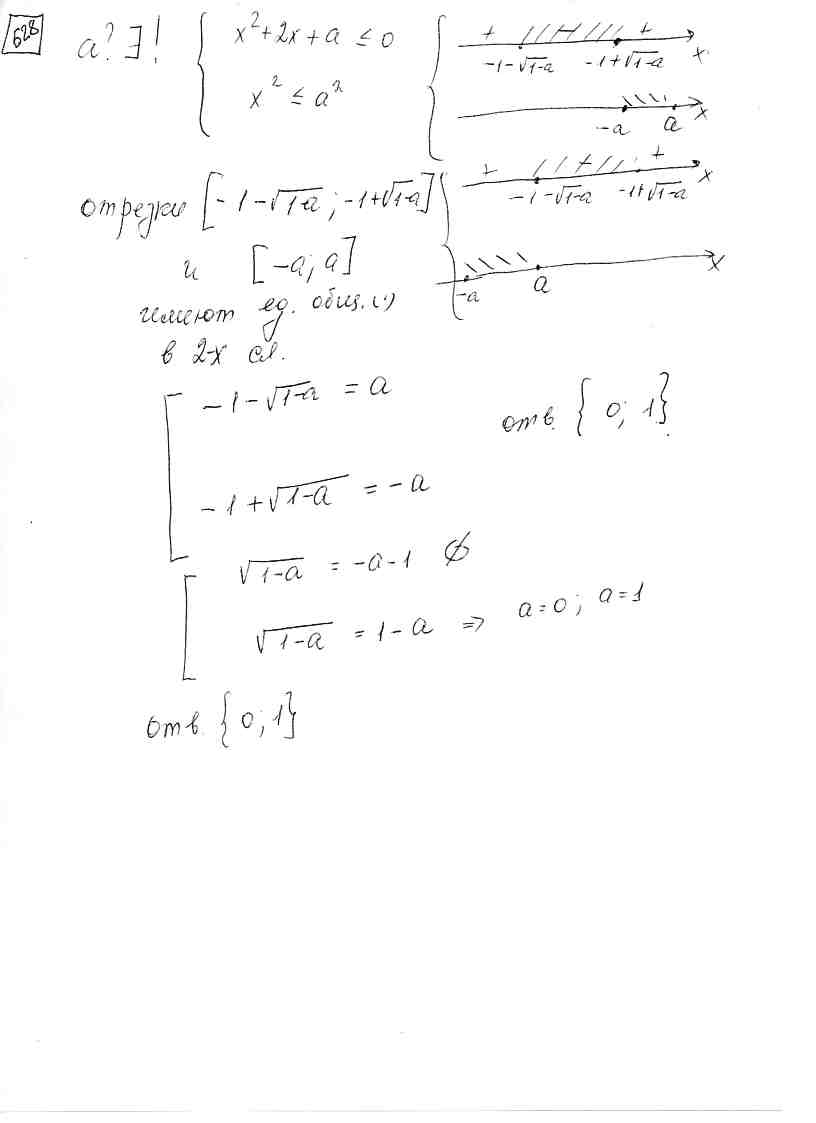 628
a? ∃! { x²+2x+a ≤ 0
x² ≤ a²
+ + x
-1-√1-a -1+√1-a
-a a x
+ + x
-1-√1-a -1+√1-a
-a a x
отрезки [-1-√1-a ; -1+√1-a]
и [-a; a]
имеют ед. общ. (·)
в 2-х сл.
[ -1-√1-a = a
-1+√1-a = -a
отв. { 0; 1 }
[ √1-a = -a-1 ∅
√1-a = 1-a => a=0; a=1
отв. {0; 1}